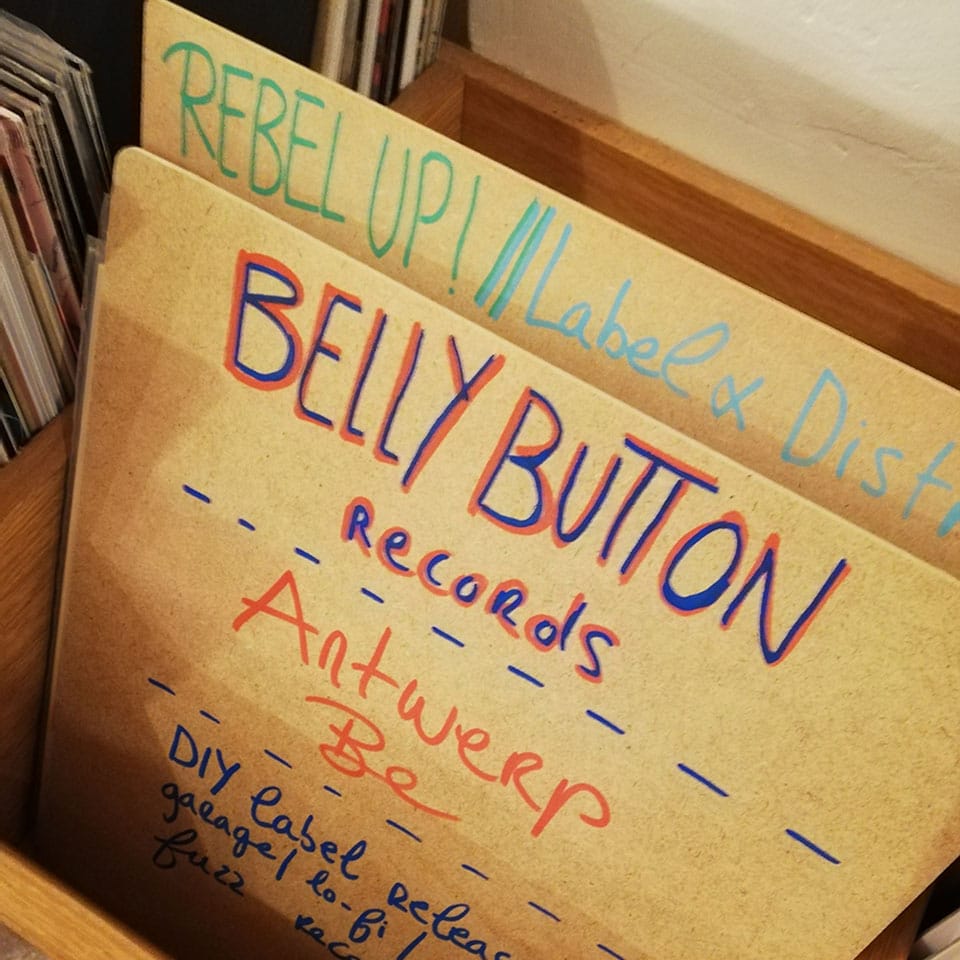 REBEL UP! /// Label & Distr
BELLY BUTTON
Records
Antwerp
Be
DIY label releas
garage/ lo-fi/
fuzz reco